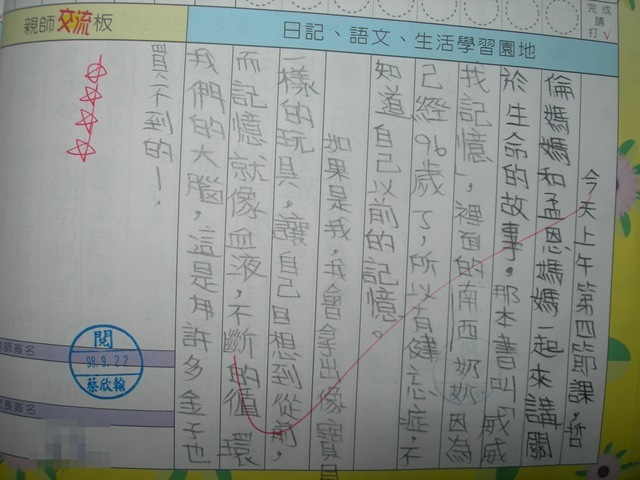 完成
請
打√
日記、語文、生活學習園地
親師交流板
今天上午第四節課,哲
倫媽媽和孟恩媽媽一起來講關
於生命的故事。那本書叫「威威
找記憶」,裡面的南西奶奶因為
已經96歲了,所以有健忘症,不
知道自己以前的記憶。
如果是我,我會拿出像寶貝
一樣的玩具,讓自己回想到從前,
而記憶就像血液,不斷的循環
我們的大腦,這是用許多金子也
買不到的!
師簽名
閱
98.9.22
蔡欣翰
長簽名